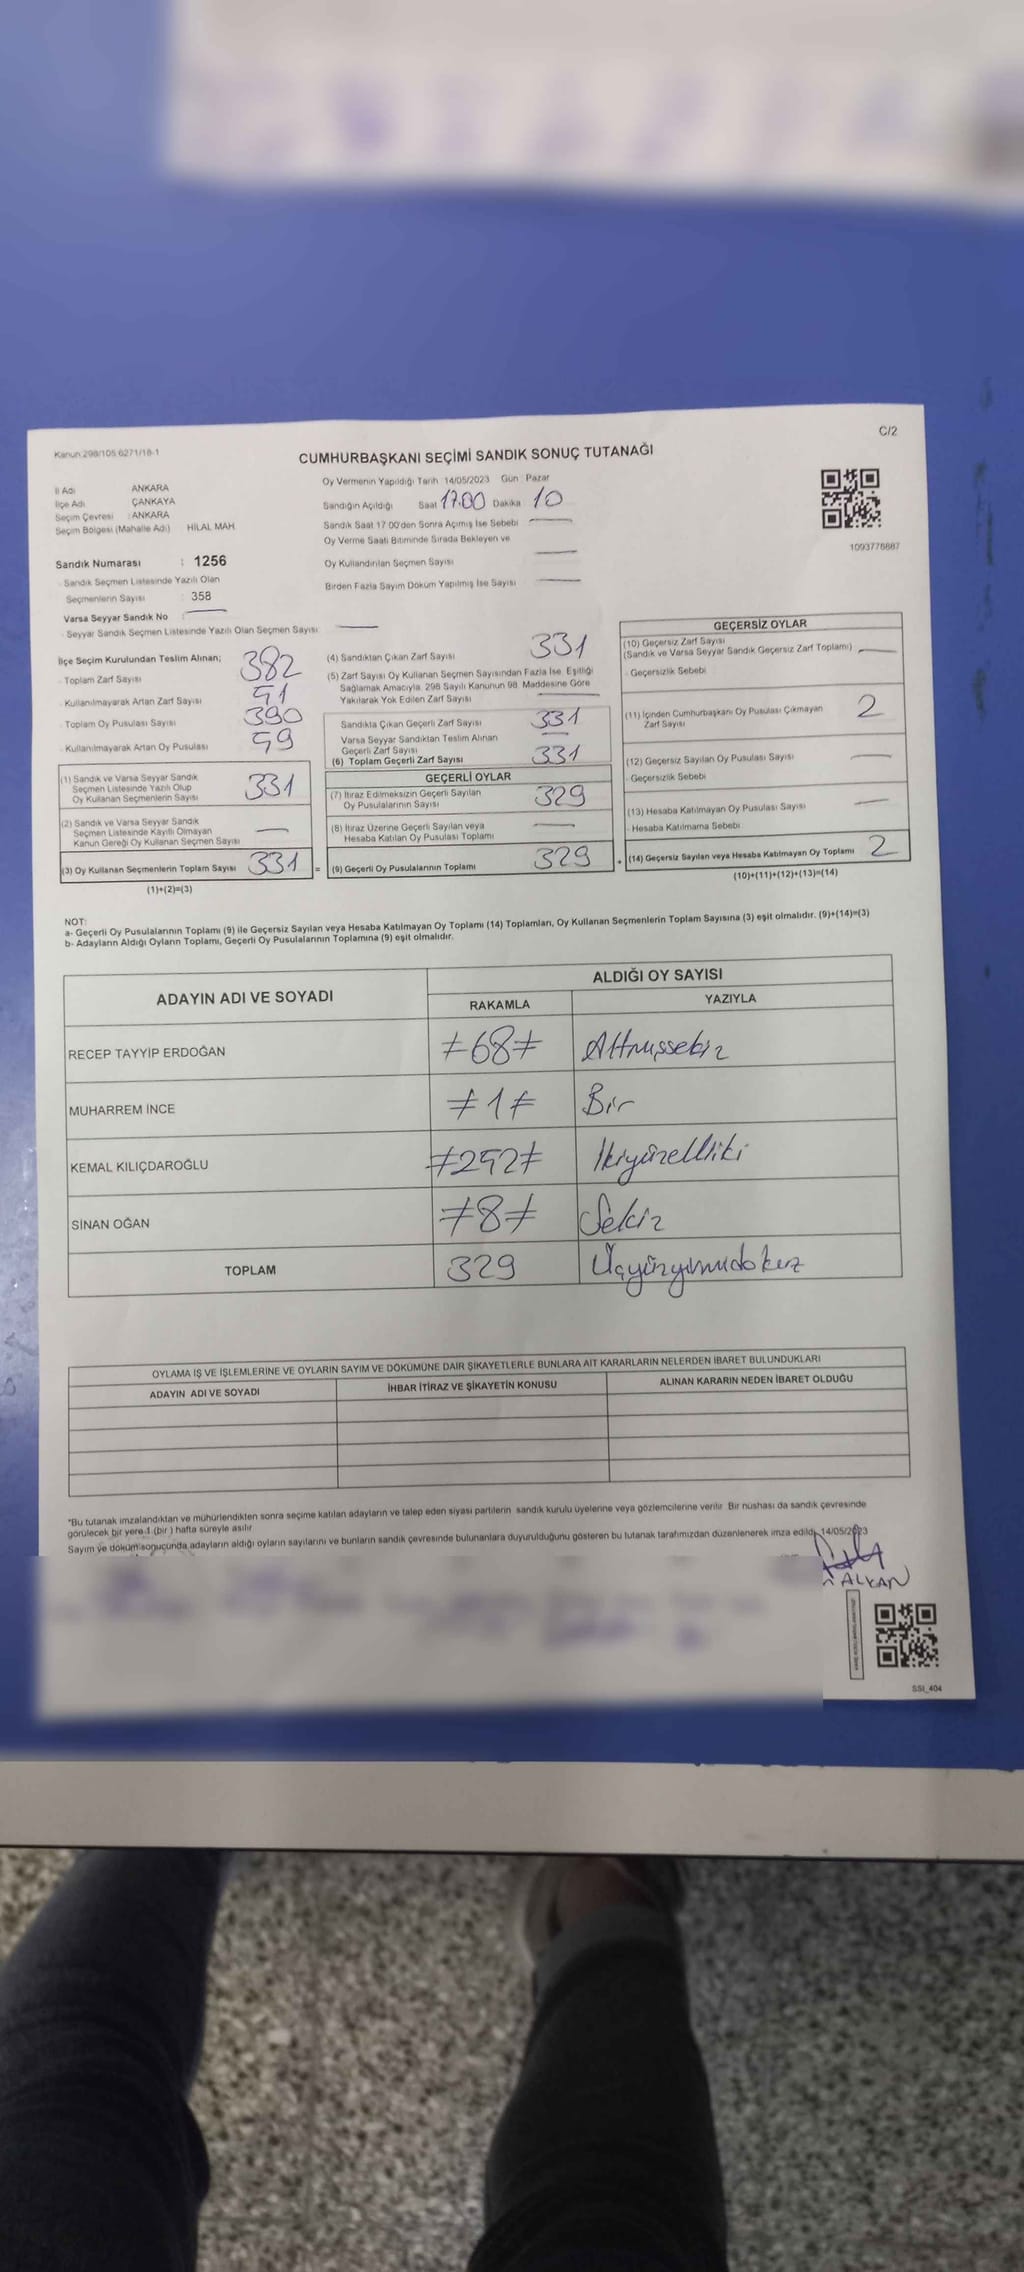 C/2
Kanun:298/105 6271/18-1
CUMHURBAŞKANI SEÇİMİ SANDIK SONUÇ TUTANAĞI
İl Adı ANKARA
İlçe Adı ÇANKAYA
Seçim Çevresi : ANKARA
Seçim Bölgesi (Mahalle Adı) HİLAL MAH.
Oy Vermenin Yapıldığı Tarih 14/05/2023 Gün Pazar
Sandığın Açıldığı Saat 17.00 Dakika 10
Sandık Saat 17.00'den Sonra Açımış İse Sebebi
Oy Verme Saati Bitiminde Sırada Bekleyen ve
Oy Kullandırılan Seçmen Sayısı
Birden Fazla Sayım Döküm Yapılmış İse Sayısı
1093776887
Sandık Numarası : 1256
Sandık Seçmen Listesinde Yazılı Olan
Seçmenlerin Sayısı : 358
Varsa Seyyar Sandık No
Seyyar Sandık Seçmen Listesinde Yazılı Olan Seçmen Sayısı:
İlçe Seçim Kurulundan Teslim Alınan;
Toplam Zarf Sayısı 382
Kullanılmayarak Artan Zarf Sayısı 51
Toplam Oy Pusulası Sayısı 390
Kullanılmayarak Artan Oy Pusulası 59
(1) Sandık ve Varsa Seyyar Sandık
Seçmen Listesinde Yazılı Olup
Oy Kullanan Seçmenlerin Sayısı 331
(2) Sandık ve Varsa Seyyar Sandık
Seçmen Listesinde Kayıtlı Olmayan
Kanun Gereği Oy Kullanan Seçmen Sayısı
(3) Oy Kullanan Seçmenlerin Toplam Sayısı 331 =
(1)+(2)=(3)
(4) Sandıktan Çıkan Zarf Sayısı 331
(5) Zarf Sayısı Oy Kullanan Seçmen Sayısından Fazla İse, Eşitliği
Sağlamak Amacıyla, 298 Sayılı Kanunun 98. Maddesine Göre
Yakılarak Yok Edilen Zarf Sayısı
Sandıkta Çıkan Geçerli Zarf Sayısı 331
Varsa Seyyar Sandıktan Teslim Alınan
Geçerli Zarf Sayısı
(6) Toplam Geçerli Zarf Sayısı 331
GEÇERLİ OYLAR
(7) İtiraz Edilmeksizin Geçerli Sayılan
Oy Pusulalarının Sayısı 329
(8) İtiraz Üzerine Geçerli Sayılan veya
Hesaba Katılan Oy Pusulası Toplamı
(9) Geçerli Oy Pusulalarının Toplamı 329 +
GEÇERSİZ OYLAR
(10) Geçersiz Zarf Sayısı
(Sandık ve Varsa Seyyar Sandık Geçersiz Zarf Toplamı)
Geçersizlik Sebebi
(11) İçinden Cumhurbaşkanı Oy Pusulası Çıkmayan
Zarf Sayısı 2
(12) Geçersiz Sayılan Oy Pusulası Sayısı
Geçersizlik Sebebi
(13) Hesaba Katılmayan Oy Pusulası Sayısı
- Hesaba Katılmama Sebebi
(14) Geçersiz Sayılan veya Hesaba Katılmayan Oy Toplamı 2
(10)+(11)+(12)+(13)=(14)
NOT:
a- Geçerli Oy Pusulalarının Toplamı (9) ile Geçersiz Sayılan veya Hesaba Katılmayan Oy Toplamı (14) Toplamları, Oy Kullanan Seçmenlerin Toplam Sayısına (3) eşit olmalıdır. (9)+(14)=(3)
b- Adayların Aldığı Oyların Toplamı, Geçerli Oy Pusulalarının Toplamına (9) eşit olmalıdır.
ADAYIN ADI VE SOYADI ALDIĞI OY SAYISI
RAKAMLA YAZIYLA
RECEP TAYYİP ERDOĞAN ≠68≠ Altmışsekiz
MUHARREM İNCE ≠1≠ Bir
KEMAL KILIÇDAROĞLU ≠252≠ İkiyüzelliiki
SİNAN OĞAN ≠8≠ Sekiz
TOPLAM 329 Üçyüzyirmidokuz
OYLAMA İŞ VE İŞLEMLERİNE VE OYLARIN SAYIM VE DÖKÜMÜNE DAİR ŞİKAYETLERLE BUNLARA AİT KARARLARIN NELERDEN İBARET BULUNDUKLARI
ADAYIN ADI VE SOYADI İHBAR İTİRAZ VE ŞİKAYETİN KONUSU ALINAN KARARIN NEDEN İBARET OLDUĞU
*Bu tutanak imzalandıktan ve mühürlendikten sonra seçime katılan adayların ve talep eden siyasi partilerin sandık kurulu üyelerine veya gözlemcilerine verilir. Bir nüshası da sandık çevresinde
görülecek bir yere 1 (bir ) hafta süreyle asılır.
Sayım ve döküm sonucunda adayların aldığı oyların sayılarını ve bunların sandık çevresinde bulunanlara duyurulduğunu gösteren bu tutanak tarafımızdan düzenlenerek imza edildi. 14/05/2023
ALKAN
SSI_404